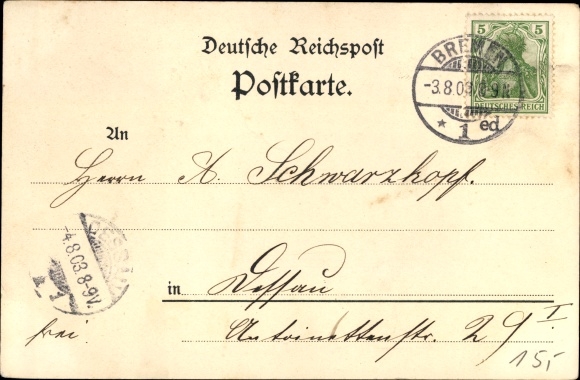 Deutsche Reichspost
Postkarte.
5 5
DEUTSCHES REICH
BREMEN
-3.8.03. 8-9 N.
* 1 ed
An
Herrn A. Schwarzkopf.
DESSAU
-4.8.03. 8-9V.
1
in Dessau
frei. Antoinettenstr. 29 I
15,-